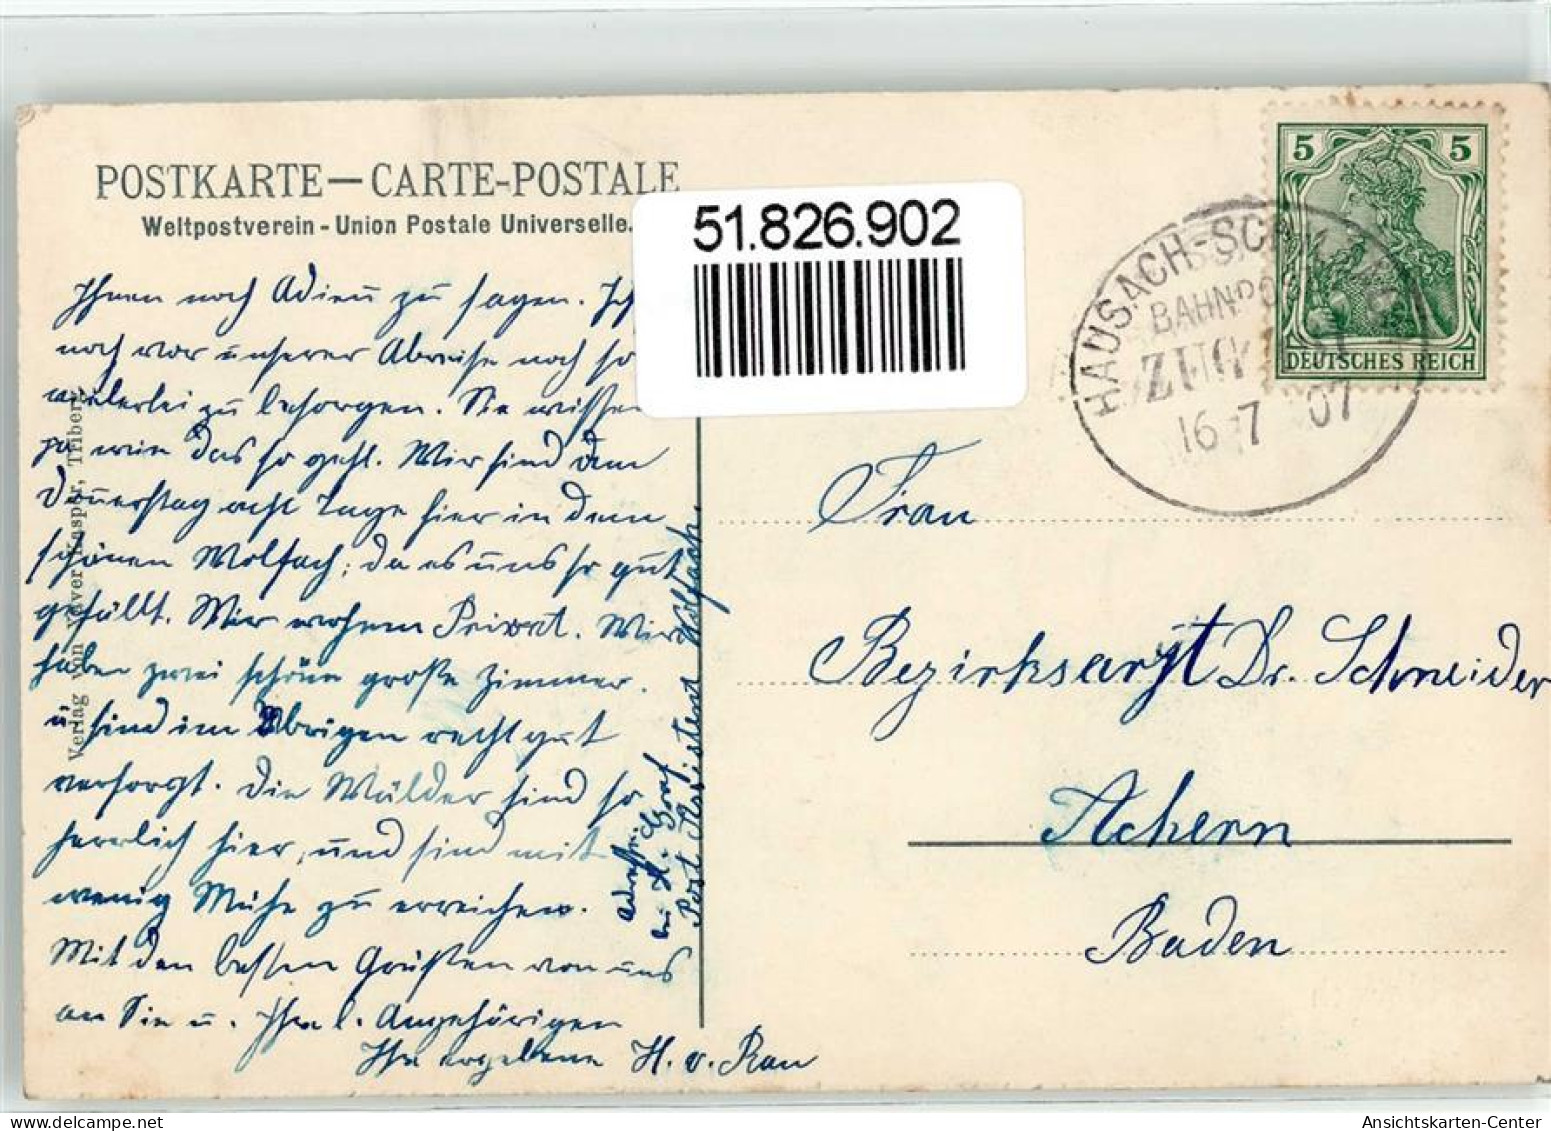 POSTKARTE—CARTE-POSTALE
Weltpostverein - Union Postale Universelle.
51.826.902
Ihnen noch Adieu zu sagen. Ich
noch vor unserer Abreise noch so
vielerlei zu besorgen. Sie wissen
ja wie das so geht. Wir sind dem
Donnerstag acht Tage hier in dem
schönen Wolfach; da es uns so gut
gefällt. Wir wohnen Privat. Wir
haben zwei schöne große Zimmer.
u. sind im Übrigen recht gut
versorgt. Die Wälder sind so
herrlich hier, und sind mit
wenig Mühe zu erreichen.
Mit den besten Grüßen von uns
an Sie u. Ihre l. Angehörigen
Ihre ergebene H. v. Rau
Adresse:
bei H. Graf
Post Assistent Wolfach.
Verlag von Xaver Kaspar, Triberg
5 5
DEUTSCHES REICH
HAUSACH-SCH
BAHNPO
ZUG
16 7 07
Frau
Bezirksarzt Dr. Schneider
Achern
Baden
Ansichtskarten-Center